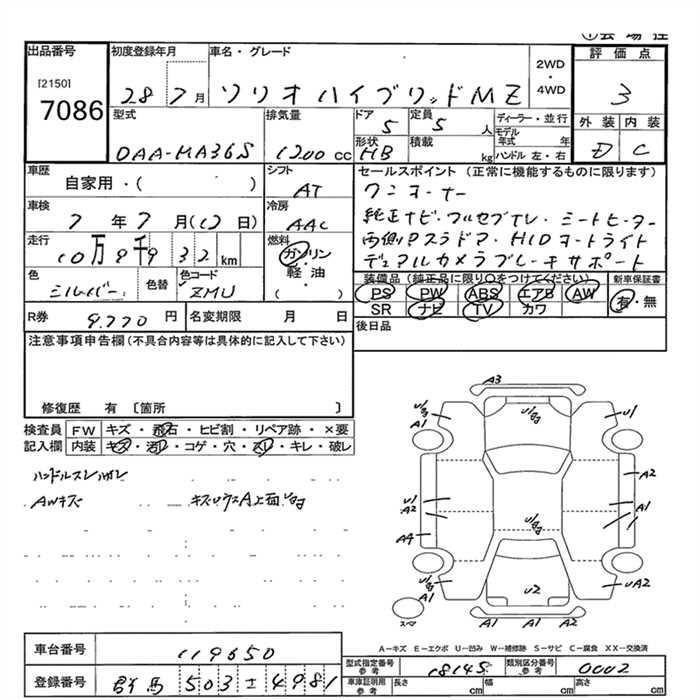 出品番号 初度登録年月 車名・グレード 評価点
[2150]
7086
28 7月 ソリオハイブリッドMZ 2WD・4WD 3
型式 排気量 ドア 定員 ディーラー・並行 外装 内装
DAA-MA36S 1200cc 5 5人 モデル年式 年 D C
形状 HB 積載 kg ハンドル 左・右
車歴 シフト セールスポイント (正常に機能するものに限ります)
自家用・( ) AT ワンオーナー
車検 冷房 純正ナビ・フルセグTV、シートヒーター
7年7月(12日) AAC 両側Pスラドア・HIDオートライト
走行 燃料 デュアルカメラブレーキサポート
10万9千9 32 km ガソリン・軽油・( )
色 色替 色コード 装備品(純正品に限り○をつけてください) 新車保証書
シルバー ZMU PS PW ABS エアB AW 有・無
SR ナビ TV カワ
R券 9.770円 名変期限 月 日 後日品
注意事項申告欄(不具合内容等は具体的に記入して下さい)
修復歴 有 〔箇所 〕
検査員 FW キズ・飛石・ヒビ割・リペア跡・×要
記入欄 内装 キズ・汚レ・コゲ・穴・スレ・キレ・破レ
AWキズ
A3
A1
U1
A2
U1
A2
A1
A4
A1
UA2
U2
A1 A1 A1
スペア
A-キズ E-エクボ U-凹み W-補修跡 S-サビ C-腐食 XX-交換済
車台番号 119650 型式指定番号 参考 18145 類別区分番号 参考 0002
登録番号 群馬 503 ± 4981 車庫証明用 参考 長さ cm 幅 cm 高さ cm